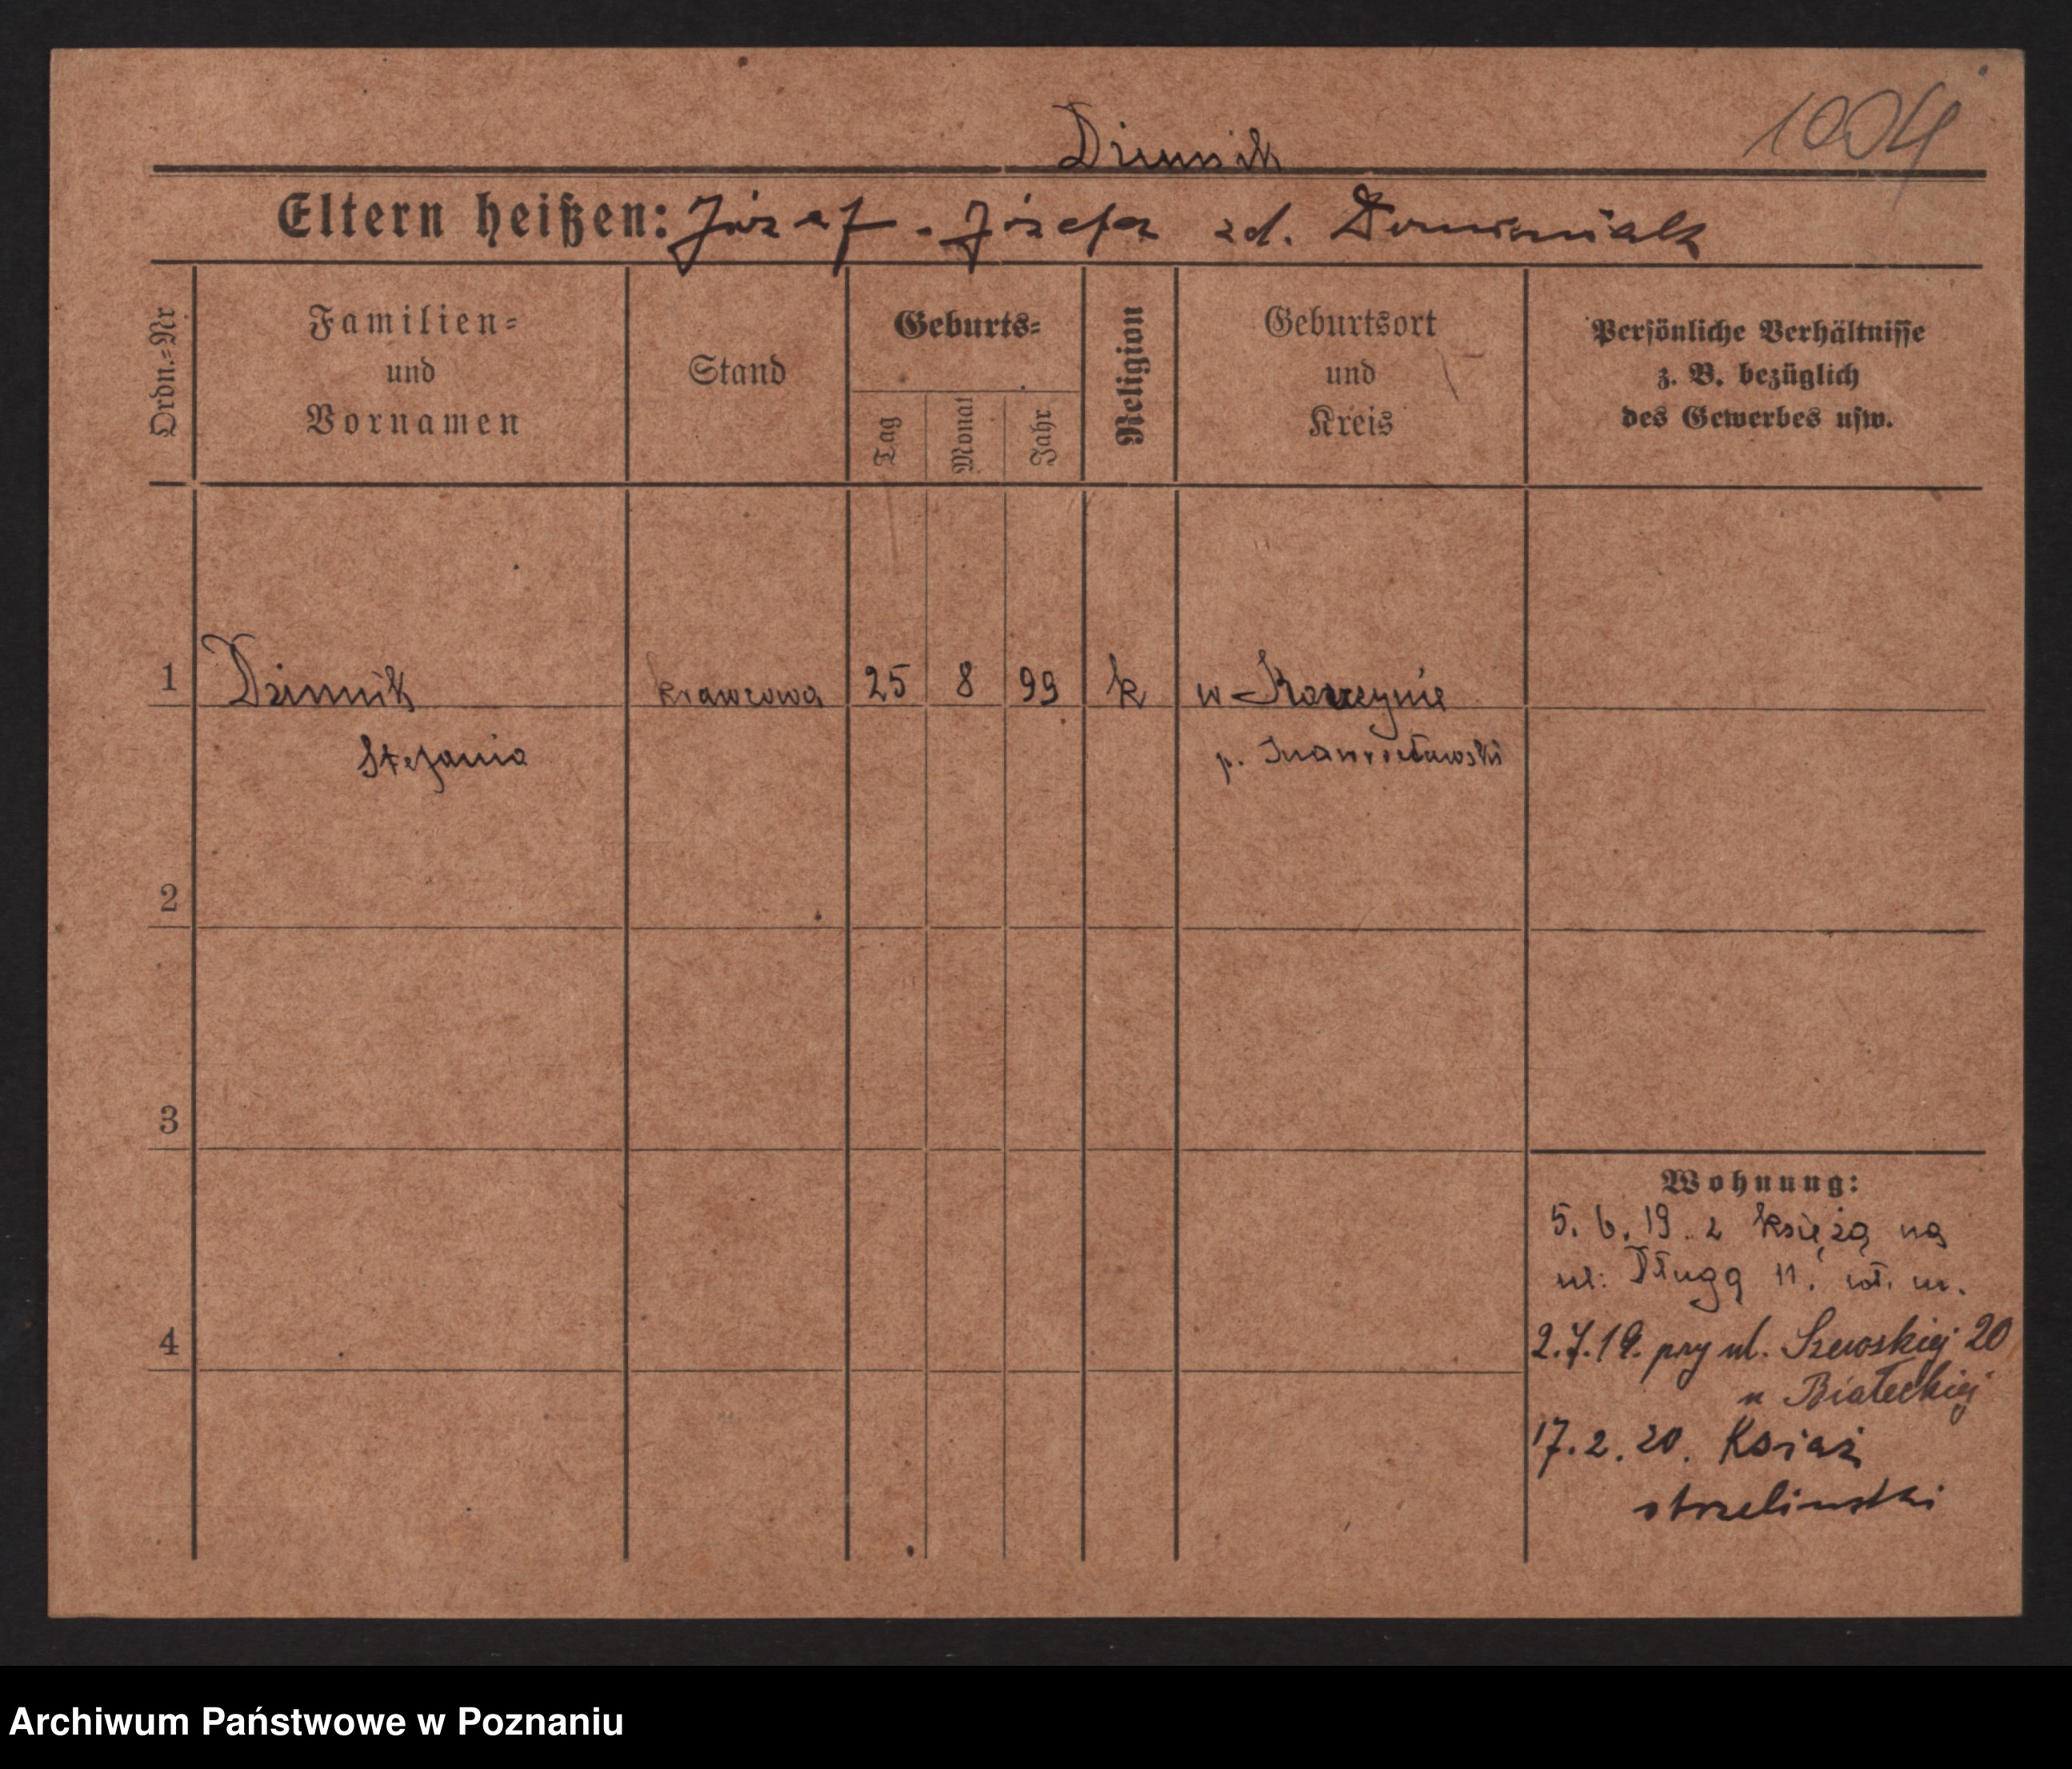 1004
Dzinnik
Eltern heißen: Józef - Józefa zd. Dominiak
Ordn.=Nr
Familien=
und
Vornamen
Stand
Geburts=
Tag
Monat
Jahr
Religion
Geburtsort
und
Kreis
Persönliche Verhältnisse
z. B. bezüglich
des Gewerbes usw.
1 Dzinnik krawcowa 25 8 99 k w
Stefania p. Inowrocławski
2
3
Wohnung:
5. 6. 19. z księżą na
ul: Długą 11.
4
2.7.19. przy ul. Szewskiej 20
u Białeckiej
17. 2. 20. Ksiaż
strzelinski
Archiwum Państwowe w Poznaniu